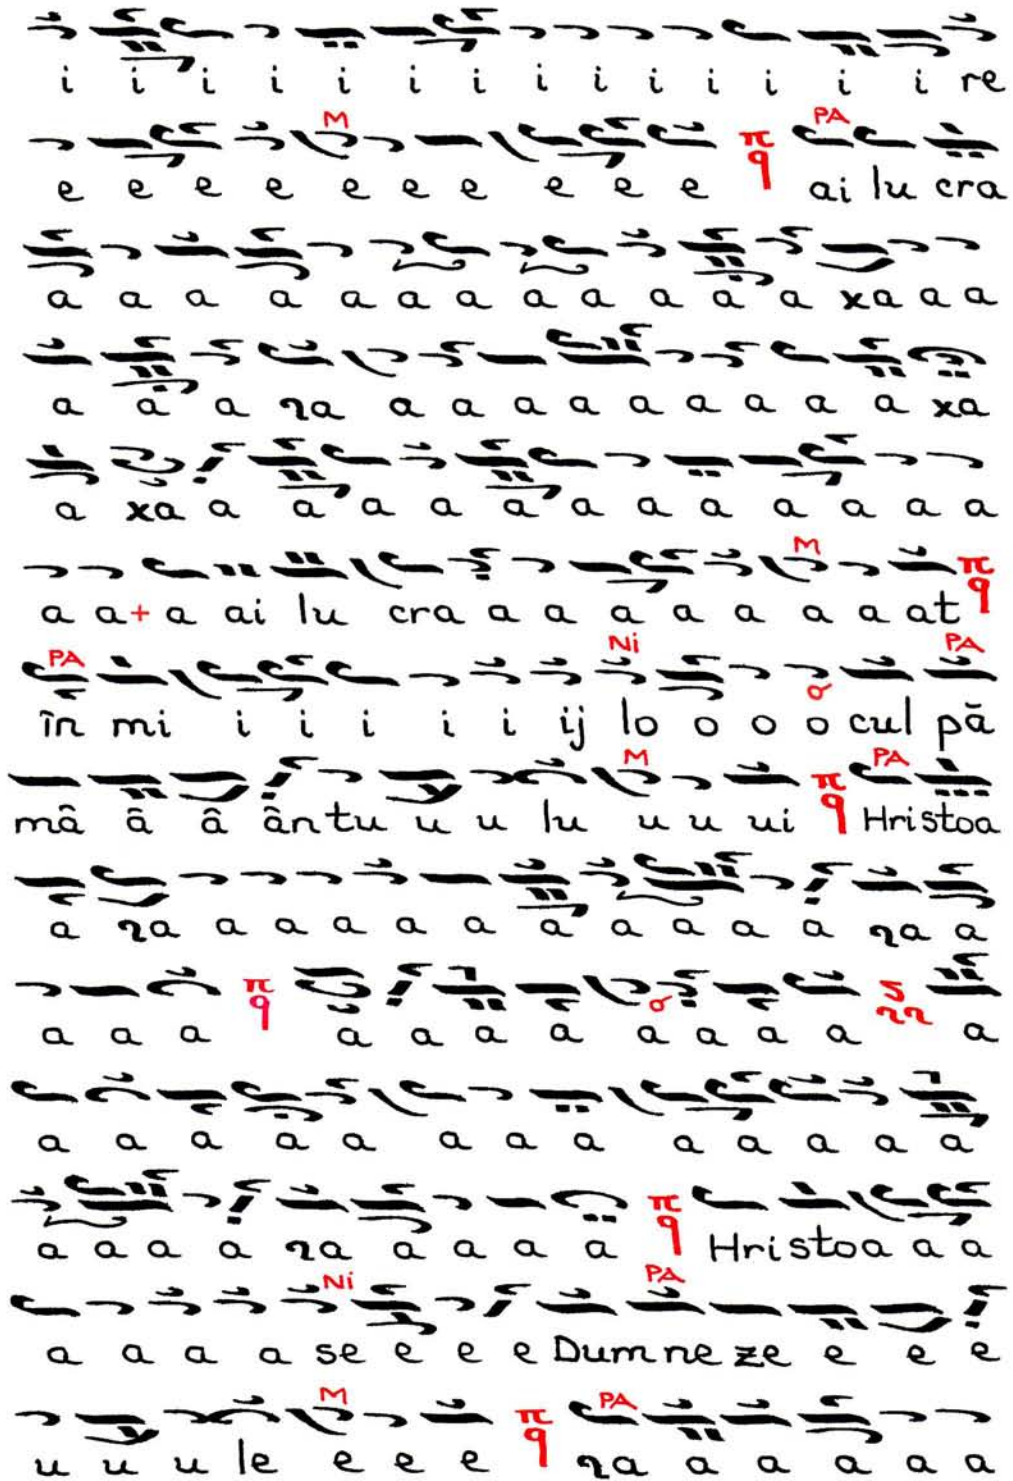 i i i i i i i i i i i i i i re
M PA
e e e e e e e e e e π q ai lu cra
a a a a a a a a a a a a xa a a
a a a ꝛa a a a a a a a a a xa
a xa a a a a a a a a a a a a
M
a a+a ai lu cra a a a a a a a at π q
PA Ni PA
în mi i i i i i ij lo o o o cul pă
M PA
mâ â â ântu u u lu u u ui π q Hristoa
a ꝛa a a a a a a a a a a ꝛa a
a a a π q a a a a a a a a a
a a a a a a a a a a a a a
a a a a ꝛa a a a a π q Hristoa a a
Ni PA
a a a a se e e e Dumneze e e e
M PA
u u u le e e e π q ꝛa a a a a a